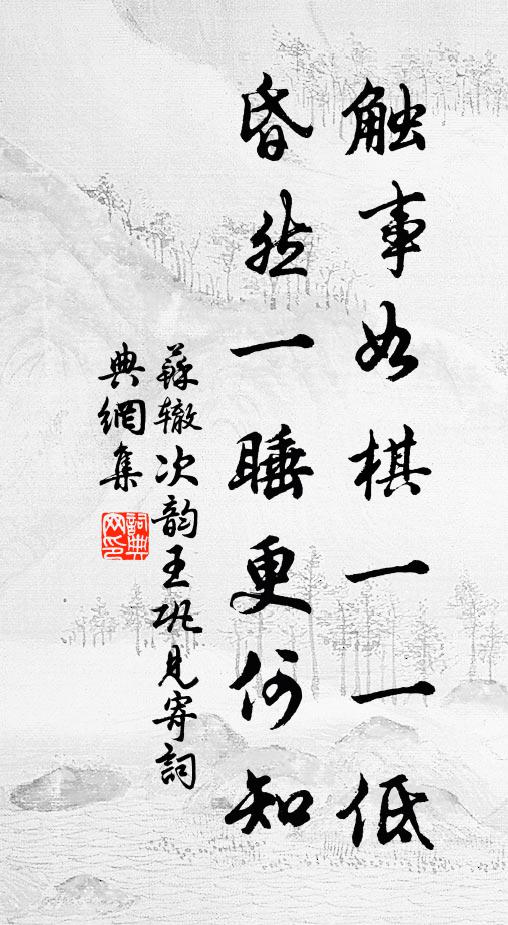 触事如棋一一低
昏然一睡更何知
蘇辙次韵王巩見寄詞
典網集
詞典网印